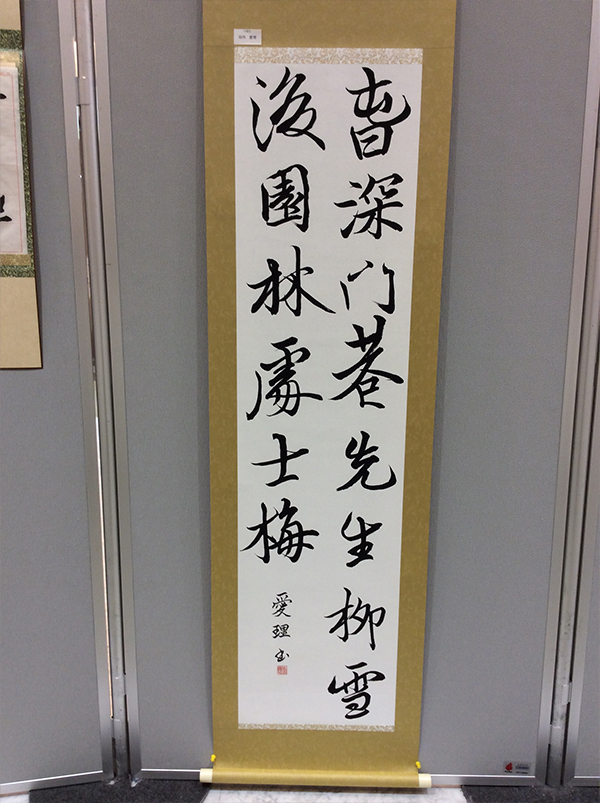 春深門巷先生柳雪
後園林處士梅
愛理書